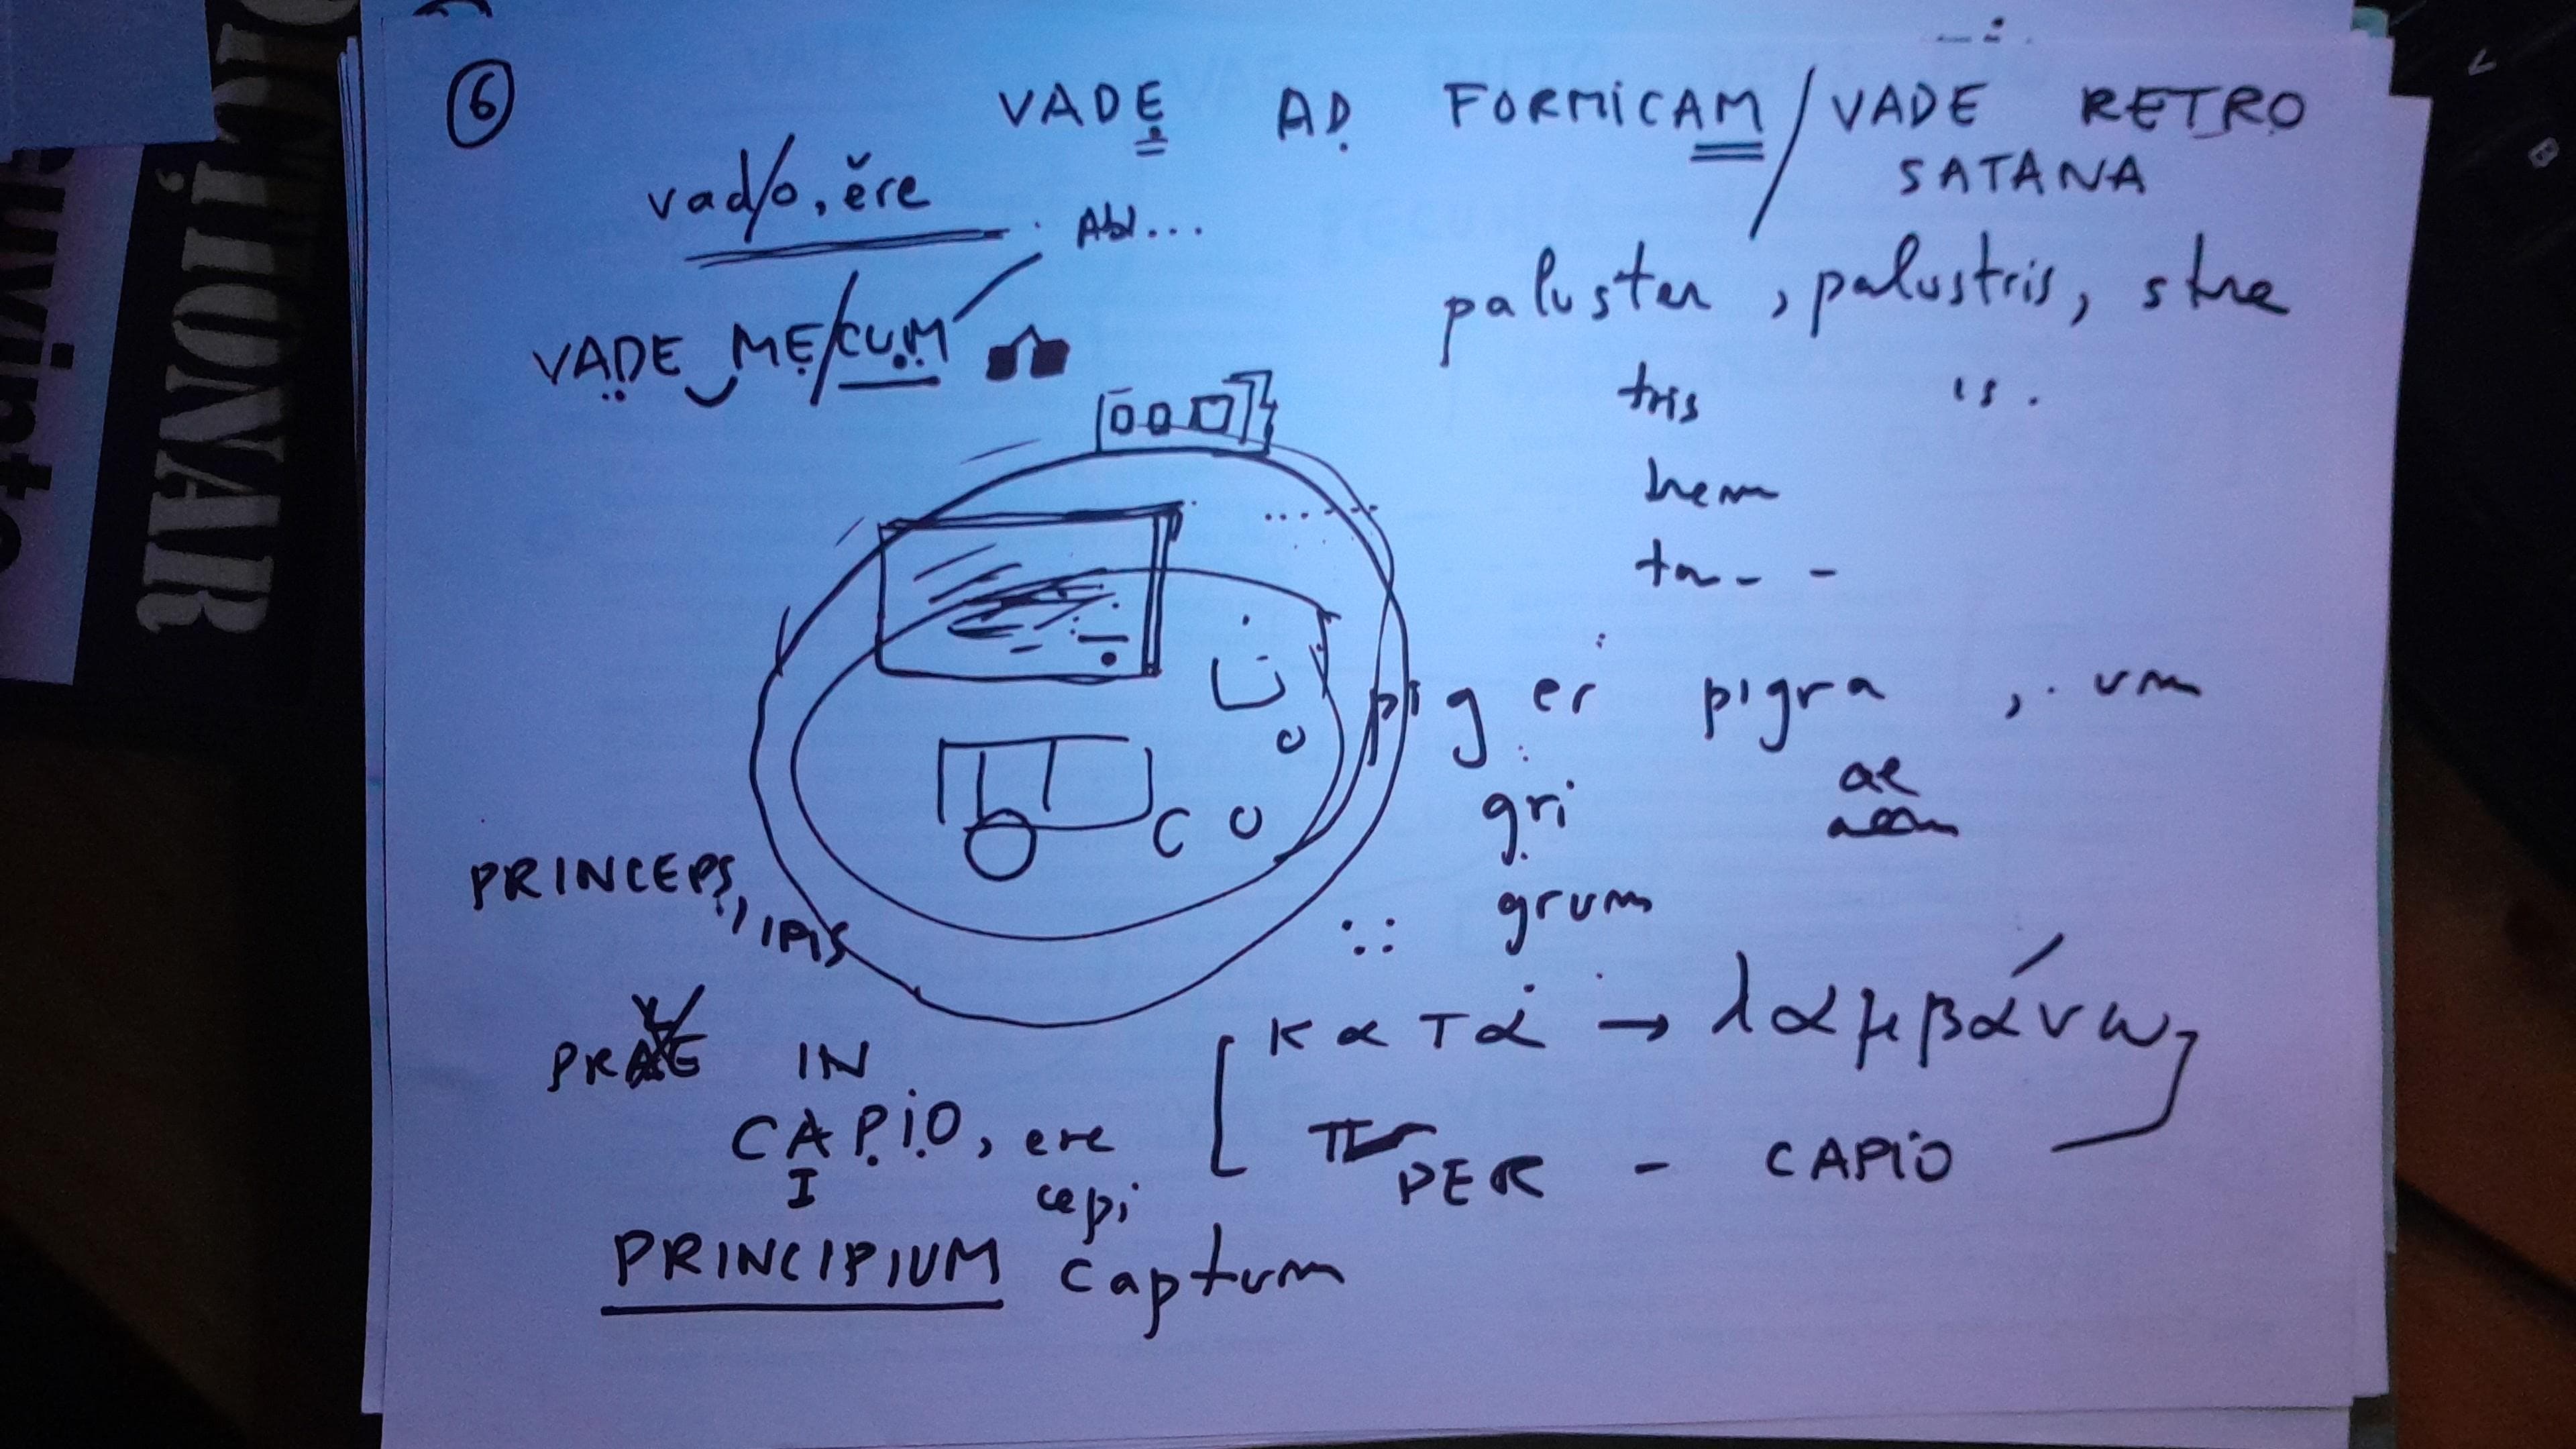 6
VADE AD FORMICAM / VADE RETRO
SATANA
vad/o, ĕre
Abl...
VADE ME/CUM
paluster, palustris, stre
tris is.
trem
piger pigra, um
gri ae
grum
PRINCEPS, IPIS
PRAE IN
CAPIO, ere
I cepi
PRINCIPIUM captum
κατά → λαμβάνω
PER - CAPIO
DICȚIONAR